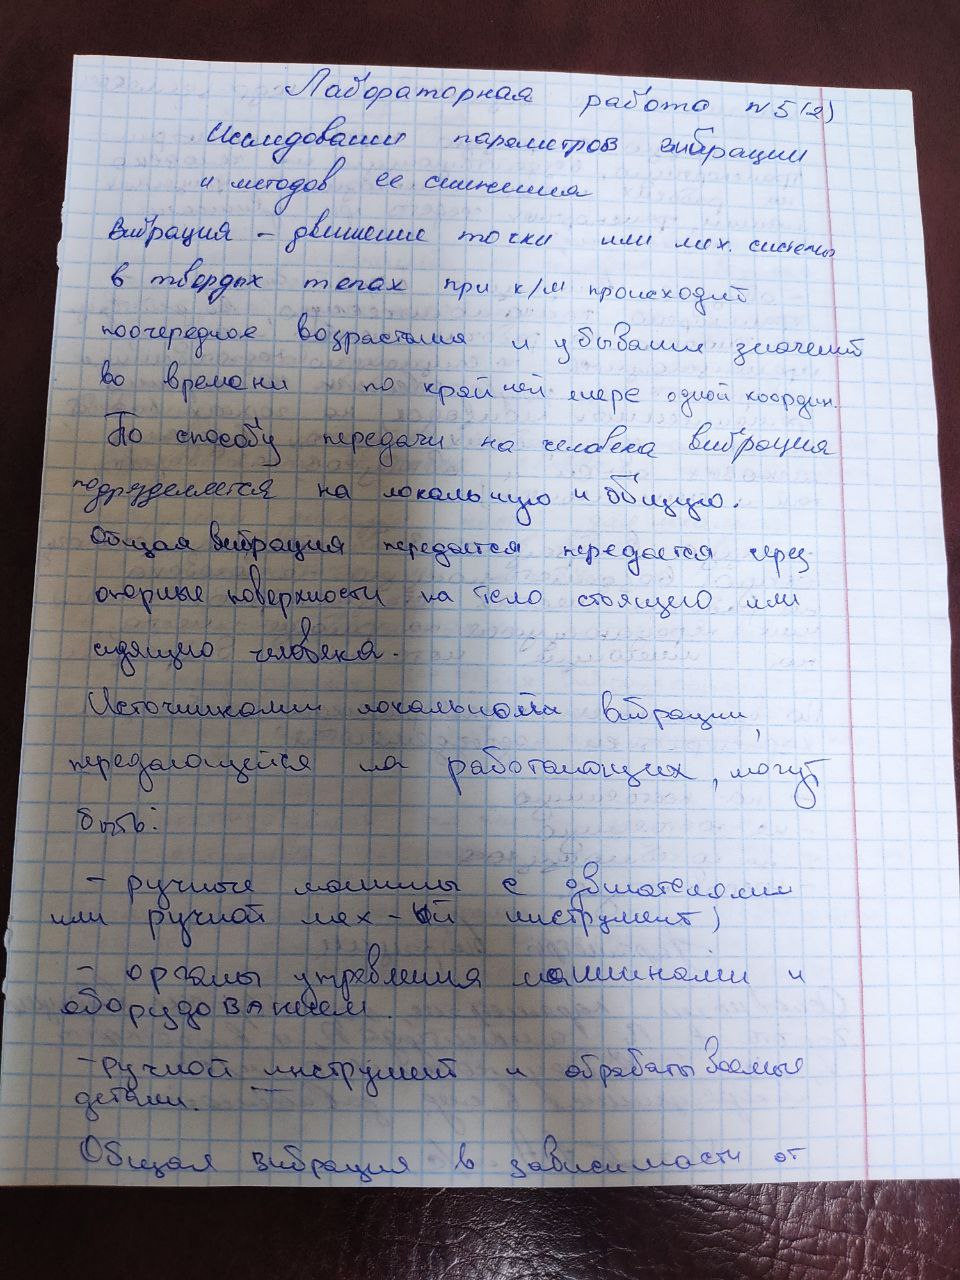 Лабораторная работа №5(2)
Исследование параметров вибрации
и методов ее снижения
Вибрация – движение точки или мех. системы
в твердых телах при к/м происходит
поочередное возрастания и убывание значений
во времени по крайней мере одной координ.
По способу передачи на человека вибрация
подразделяется на локальную и общую.
Общая вибрация передается передается через
опорные поверхности на тело стоящего или
сидящего человека.
Источниками локальной вибрации,
передающейся на работающих, могут
быть:
– ручные машины с двигателями
или ручной мех-ый инструмент;
– органы управления машинами и
оборудованием.
– ручной инструмент и обрабатываемые
детали.
Общая вибрация в зависимости от